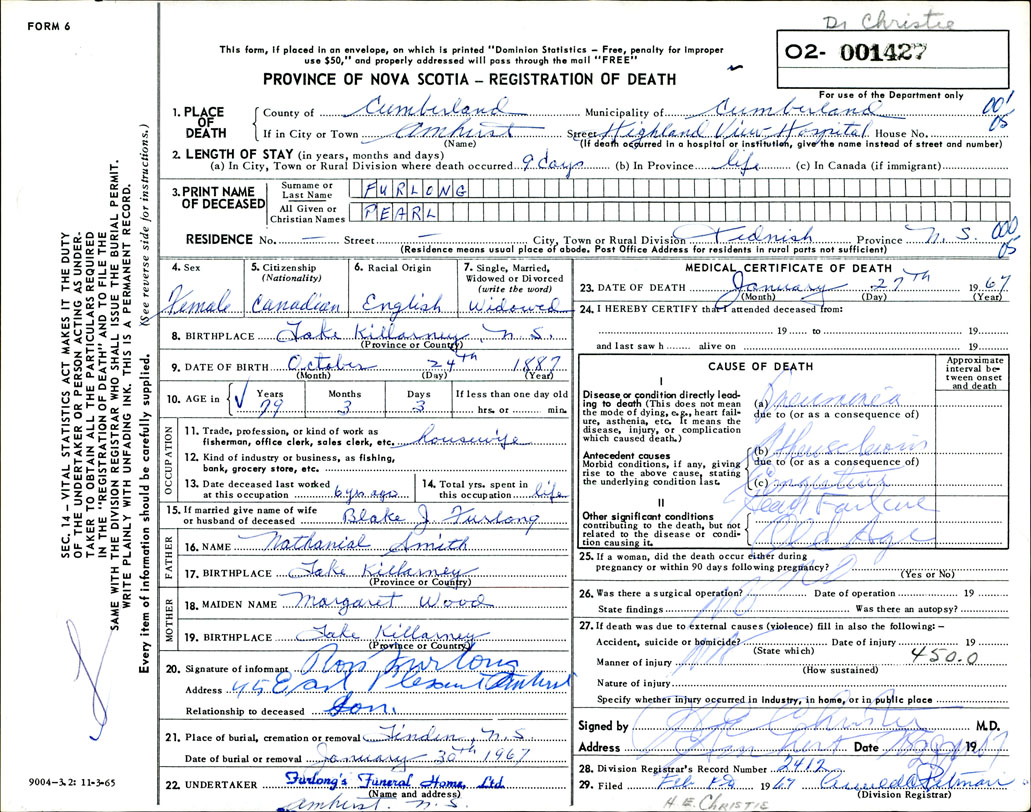 FORM 6
Dr Christie
This form, if placed in an envelope, on which is printed "Dominion Statistics – Free, penalty for improper
use $50," and properly addressed will pass through the mail "FREE"
02- 001427
PROVINCE OF NOVA SCOTIA – REGISTRATION OF DEATH
For use of the Department only
1. PLACE OF DEATH
County of Cumberland Municipality of Cumberland 001 05
If in City or Town Amherst Street Highland View Hospital House No.
(Name) (If death occurred in a hospital or institution, give the name instead of street and number)
2. LENGTH OF STAY (in years, months and days)
(a) In City, Town or Rural Division where death occurred 9 days (b) In Province life (c) In Canada (if immigrant)
3. PRINT NAME OF DECEASED
Surname or Last Name FURLONG
All Given or Christian Names PEARL
RESIDENCE No. – Street – City, Town or Rural Division Tidnish Province N. S. 000 05
(Residence means usual place of abode. Post Office Address for residents in rural parts not sufficient)
SEC. 14 – VITAL STATISTICS ACT MAKES IT THE DUTY
OF THE UNDERTAKER OR PERSON ACTING AS UNDER-
TAKER TO OBTAIN ALL THE PARTICULARS REQUIRED
IN THE "REGISTRATION OF DEATH" AND TO FILE THE
SAME WITH THE DIVISION REGISTRAR WHO SHALL ISSUE THE BURIAL PERMIT.
WRITE PLAINLY WITH UNFADING INK. THIS IS A PERMANENT RECORD.
Every item of information should be carefully supplied. (See reverse side for instructions.)
4. Sex Female
5. Citizenship (Nationality) Canadian
6. Racial Origin English
7. Single, Married, Widowed or Divorced (write the word) Widowed
8. BIRTHPLACE Lake Killarney, N. S.
(Province or Country)
9. DATE OF BIRTH October 24th 1887
(Month) (Day) (Year)
10. AGE in Years 79 Months 3 Days 3 If less than one day old hrs. or min.
OCCUPATION
11. Trade, profession, or kind of work as
fisherman, office clerk, sales clerk, etc. housewife
12. Kind of industry or business, as fishing,
bank, grocery store, etc.
13. Date deceased last worked at this occupation 6 yrs ago
14. Total yrs. spent in this occupation life
15. If married give name of wife or husband of deceased Blake J. Furlong
FATHER
16. NAME Nathanial Smith
17. BIRTHPLACE Lake Killarney
(Province or Country)
MOTHER
18. MAIDEN NAME Margaret Wood
19. BIRTHPLACE Lake Killarney
(Province or Country)
20. Signature of informant Ross Furlong
Address 45 East Plesent Amherst
Relationship to deceased Son.
21. Place of burial, cremation or removal Linden, N.S.
Date of burial or removal January 30th 1967
22. UNDERTAKER Furlong's Funeral Home, Ltd.
(Name and address)
Amherst. N. S.
9004–3.2: 11-3-65
MEDICAL CERTIFICATE OF DEATH
23. DATE OF DEATH January 27th 1967
(Month) (Day) (Year)
24. I HEREBY CERTIFY that I attended deceased from:
19 to 19
and last saw h alive on 19
CAUSE OF DEATH
Approximate interval between onset and death
I
Disease or condition directly leading to death (This does not mean the mode of dying, e.g., heart failure, asthenia, etc. It means the disease, injury, or complication which caused death.)
(a) Pneumonia
due to (or as a consequence of)
Antecedent causes
Morbid conditions, if any, giving rise to the above cause, stating the underlying condition last.
(b)
due to (or as a consequence of)
(c) Congestive
Heart Failure
II
Other significant conditions
contributing to the death, but not related to the disease or condition causing it.
Old Age
25. If a woman, did the death occur either during
pregnancy or within 90 days following pregnancy? NO
(Yes or No)
26. Was there a surgical operation? NO Date of operation 19
State findings Was there an autopsy?
27. If death was due to external causes (violence) fill in also the following:–
Accident, suicide or homicide? Date of injury 19
(State which) 450.0
Manner of injury
(How sustained)
Nature of injury
Specify whether injury occurred in industry, in home, or in public place
Signed by Christie M.D.
Address Amherst Date 19
28. Division Registrar's Record Number 2412
29. Filed Feb. 1967
(Division Registrar)
H E CHRISTIE